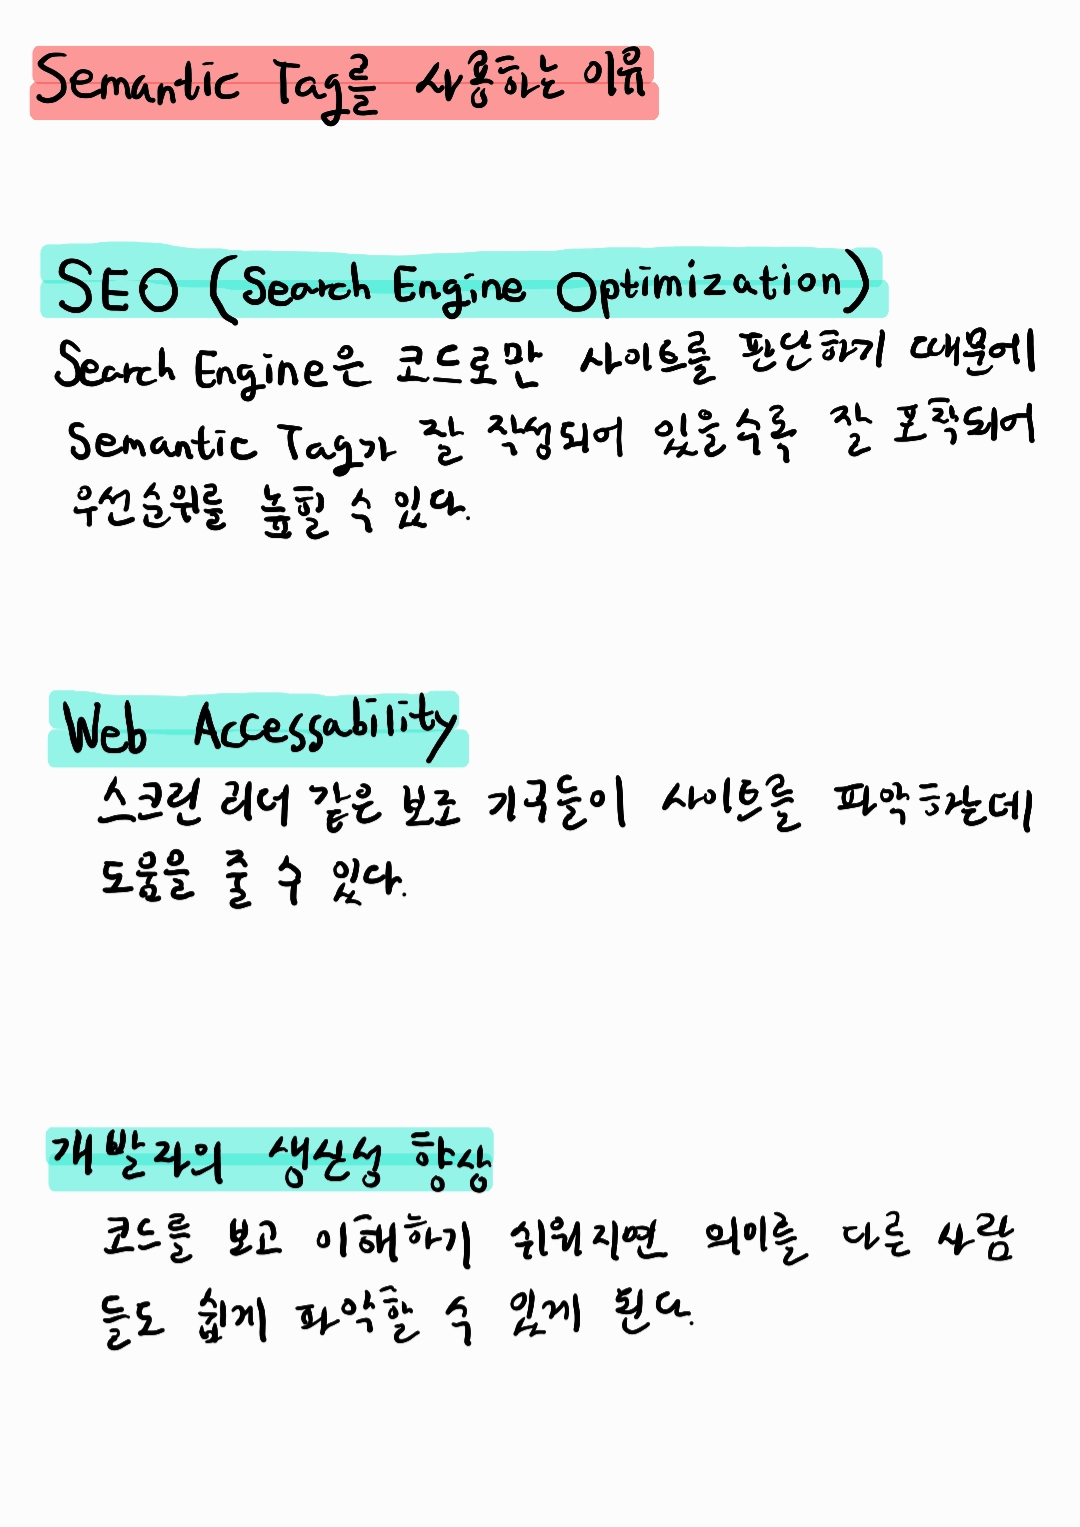 Semantic Tag를 사용하는 이유
SEO (Search Engine Optimization)
Search Engine은 코드로만 사이트를 판단하기 때문에
Semantic Tag가 잘 작성되어 있을수록 잘 포착되어
우선순위를 높힐 수 있다.
Web Accessability
스크린 리더 같은 보조 기구들이 사이트를 파악하는데
도움을 줄 수 있다.
개발자의 생산성 향상
코드를 보고 이해하기 쉬워지면 의미를 다른 사람
들도 쉽게 파악할 수 있게 된다.